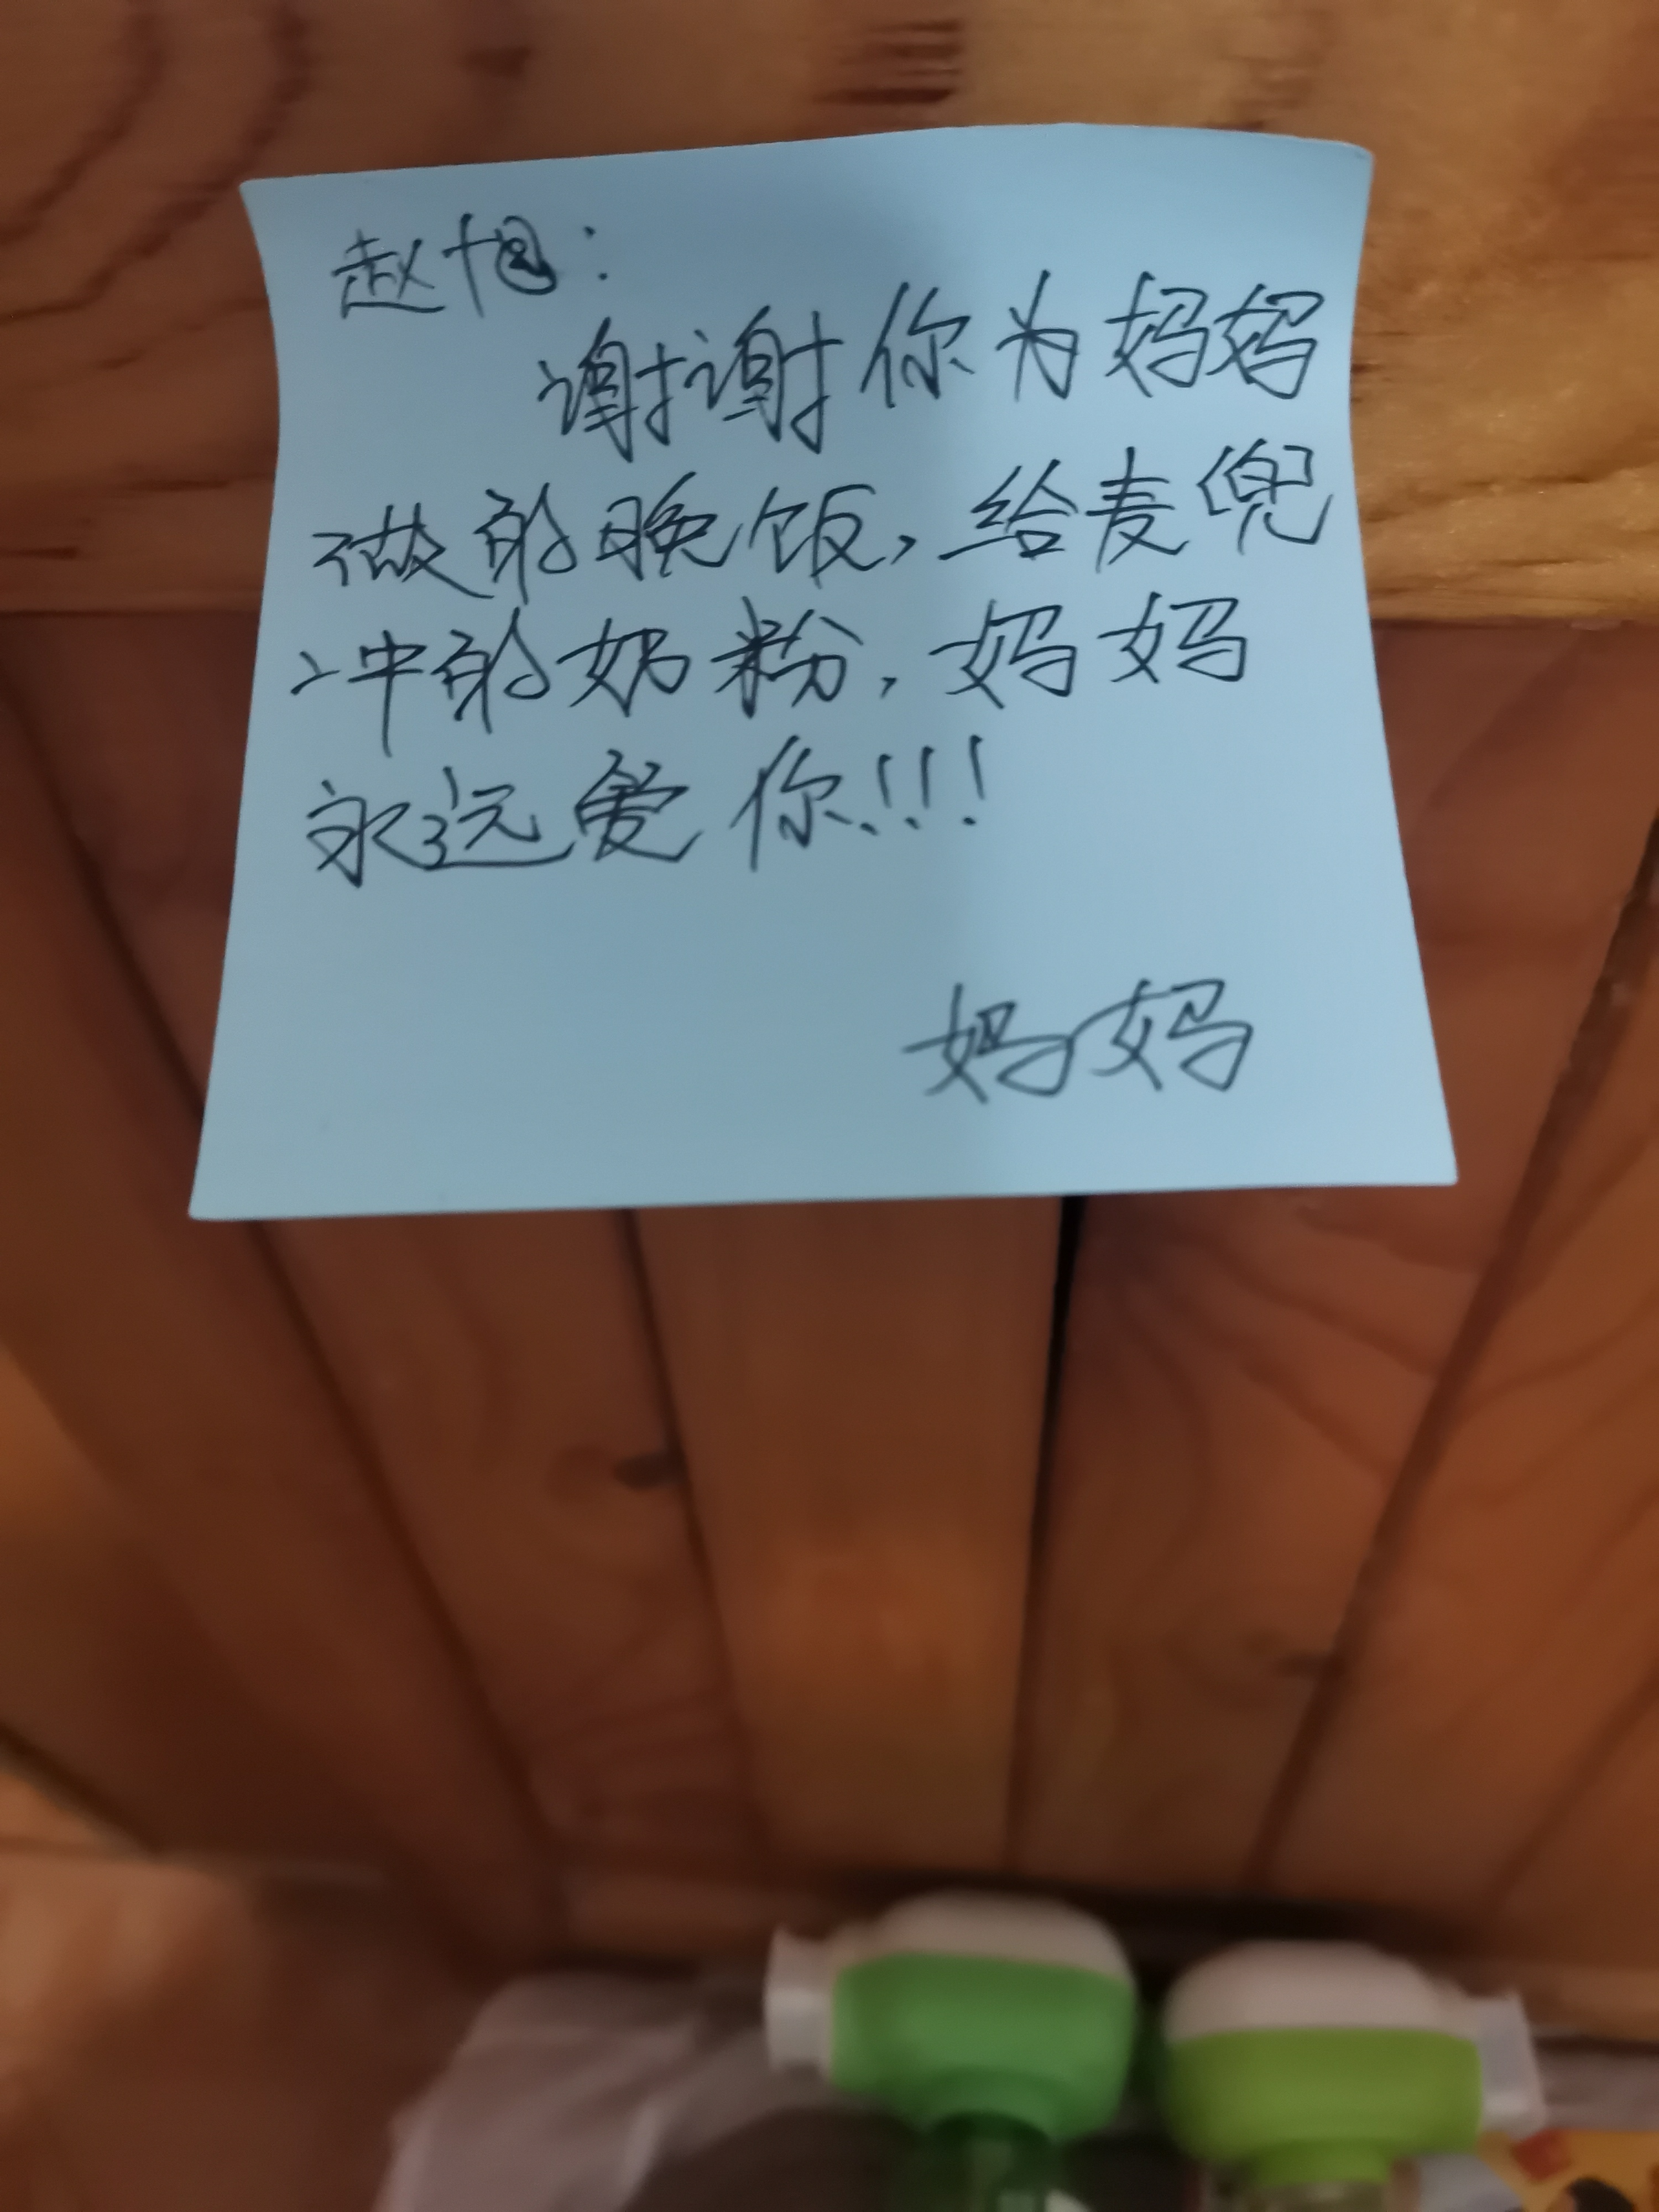 赵旭:
谢谢你为妈妈
做的晚饭,给麦兜
冲的奶粉,妈妈
永远爱你!!!
妈妈